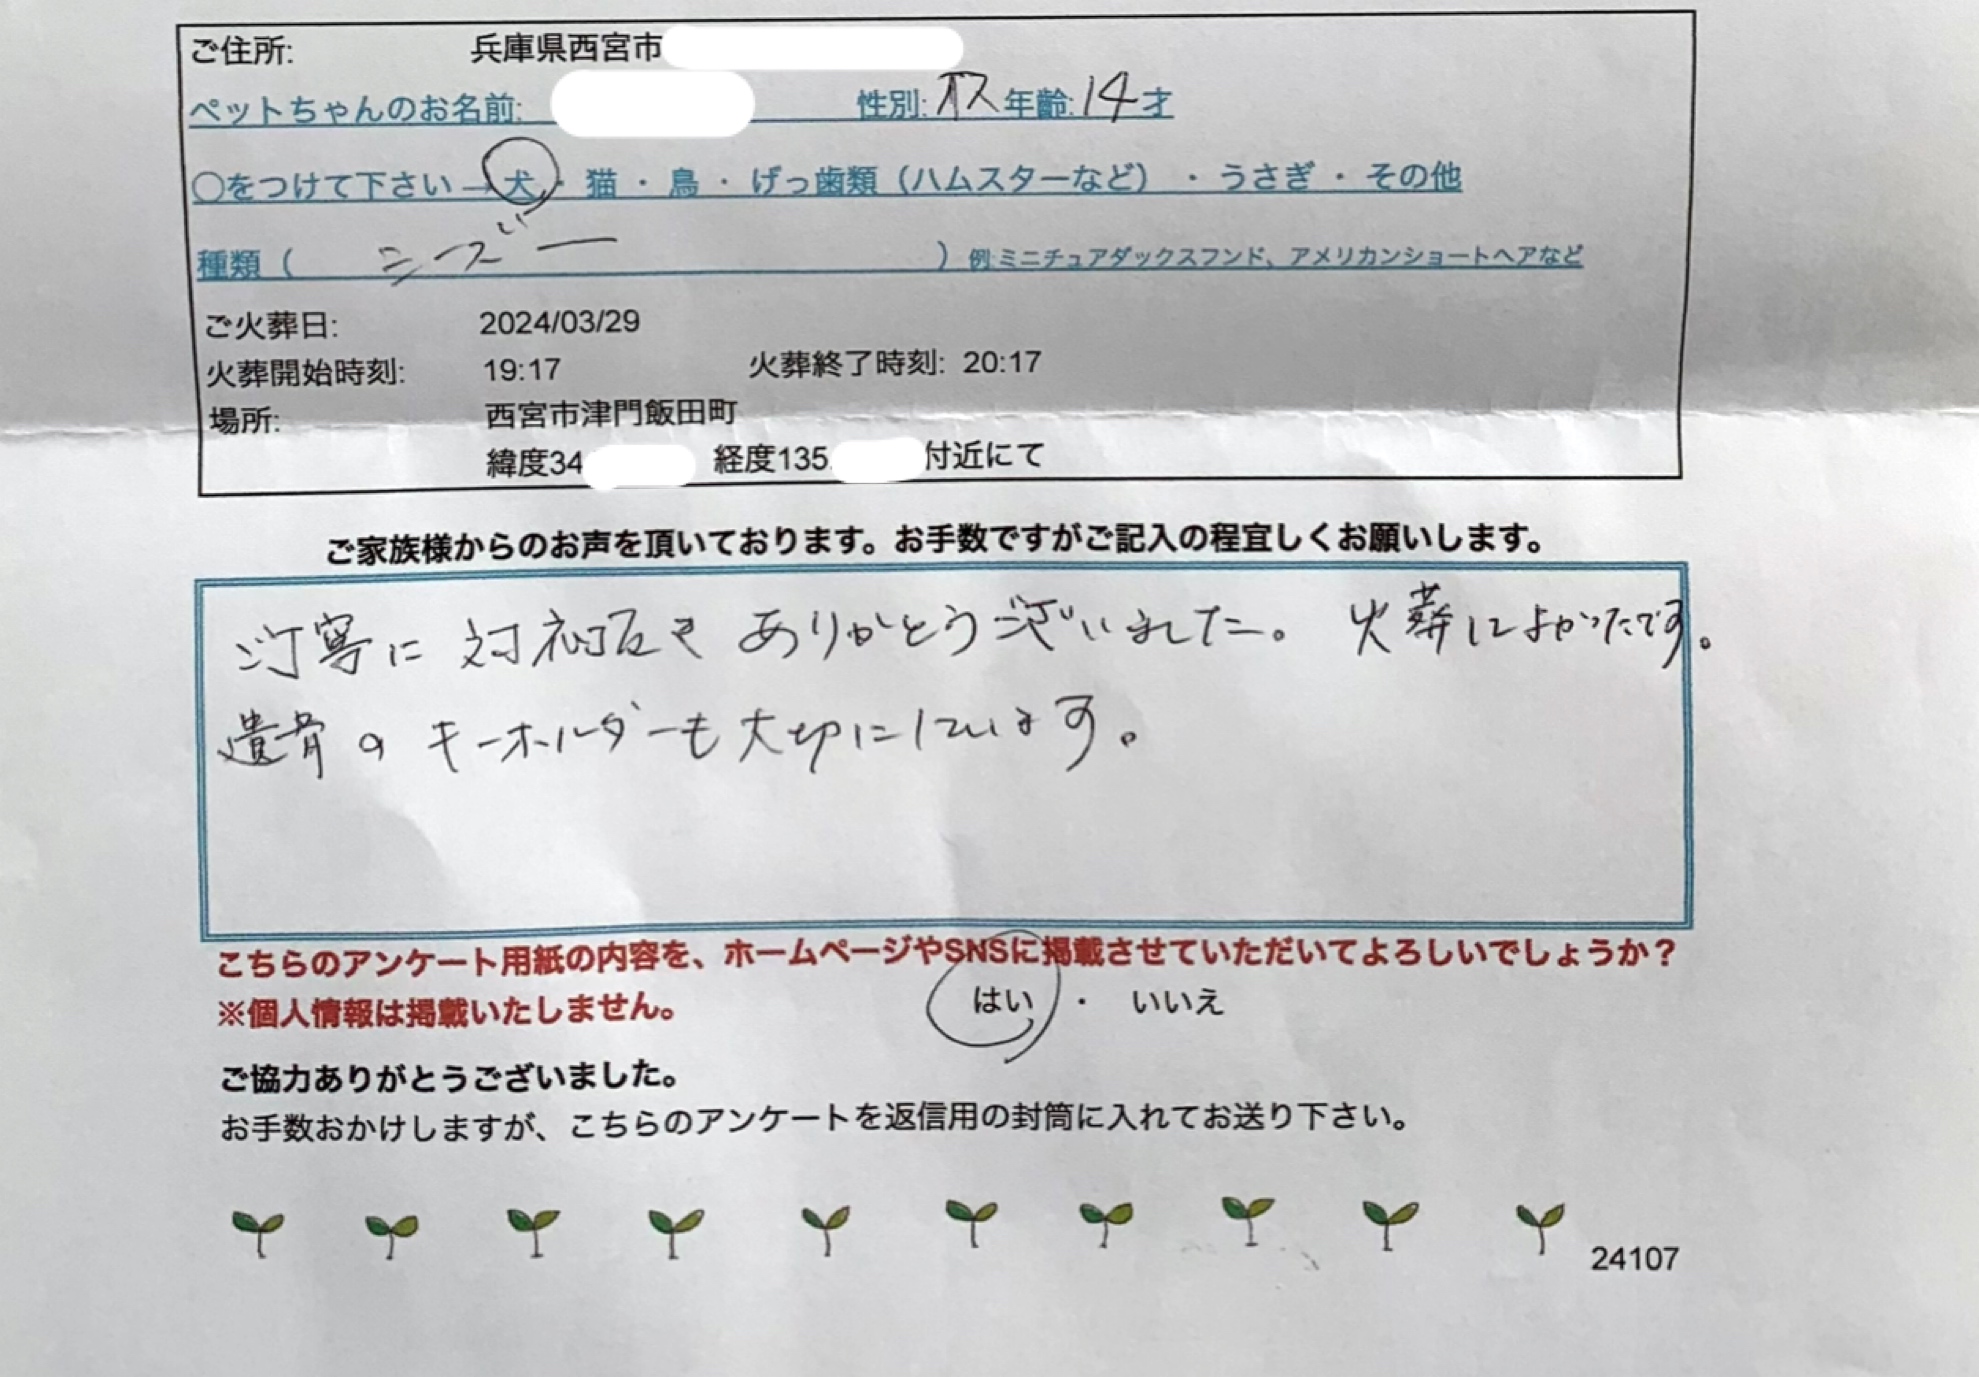 ご住所: 兵庫県西宮市
ペットちゃんのお名前: 性別:オス 年齢:14才
○をつけて下さい→犬・猫・鳥・げっ歯類（ハムスターなど）・うさぎ・その他
種類（ シーズー ）例:ミニチュアダックスフンド、アメリカンショートヘアなど
ご火葬日: 2024/03/29
火葬開始時刻: 19:17 火葬終了時刻: 20:17
場所: 西宮市津門飯田町
緯度34. 経度135. 付近にて
ご家族様からのお声を頂いております。お手数ですがご記入の程宜しくお願いします。
丁寧に 対応 ありがとうございました。 火葬してよかったです。
遺骨の キーホルダーも大切にしています。
こちらのアンケート用紙の内容を、ホームページやSNSに掲載させていただいてよろしいでしょうか？
※個人情報は掲載いたしません。 はい ・ いいえ
ご協力ありがとうございました。
お手数おかけしますが、こちらのアンケートを返信用の封筒に入れてお送り下さい。
24107